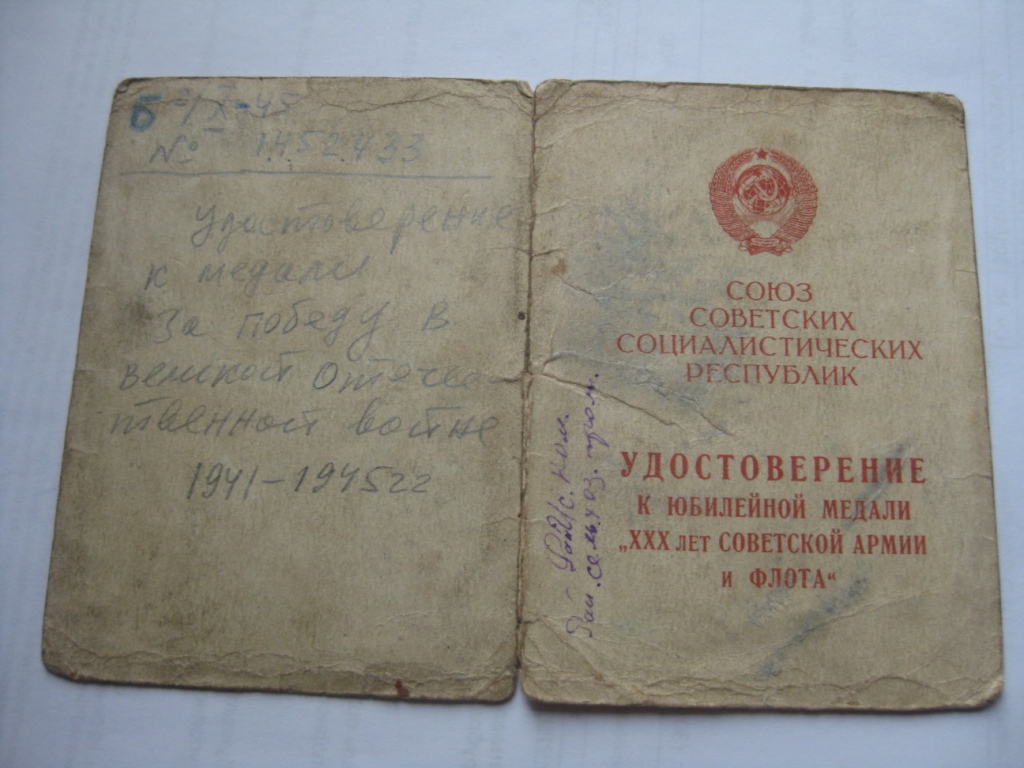 Б
№ 1452433
Удостоверение
к медали
За победу в
великой отечес
твенной войне
1941-1945гг
СОЮЗ
СОВЕТСКИХ
СОЦИАЛИСТИЧЕСКИХ
РЕСПУБЛИК
УДОСТОВЕРЕНИЕ
К ЮБИЛЕЙНОЙ МЕДАЛИ
„XXX ЛЕТ СОВЕТСКОЙ АРМИИ
И ФЛОТА“